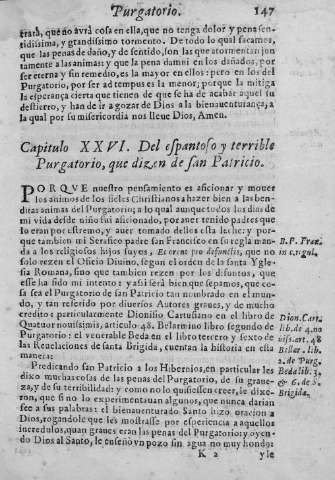 Purgatorio. 147
trarà, que no àvrà cosa en ella, que no tenga dolor y pena sen-
tidissima, y grandissimo tormento. De todo lo qual sacamos,
que las penas de daño, y de sentido, son las que atormentan jun
tamente a las animas: y que la pena damni en los dañados, por
ser eterna y sin remedio, es la mayor en ellos: pero en los del
Purgatorio, por ser ad tempus es la menor; porque la mitiga
la esperança cierta que tienen de que se ha de acabar aquel su
destierro, y han de ir a gozar de Dios a la bienaventurança, a
la qual por su misericordia nos lleue Dios, Amen.
Capitulo XXVI. Del espantoso y terrible
Purgatorio, que dizen de san Patricio.
PORQVE nuestro pensamiento es aficionar y mouer
los animos de los fieles Christianos a hazer bien a las ben-
ditas animas del Purgatorio; a lo qual aunque todos los dias de
mi vida desde niño fui aficionado, por auer tenido padres que
lo eran por estremo, y auer tomado dellos esta leche: y por-
que tambien mi Serafico padre san Francisco en su regla man-
da a los religiosos hijos suyos, Et orent pro defunctis, que no
solo rezen el Oficio Diuino, segun el orden de la santa Ygle-
sia Romana, sino que tambien rezen por los difuntos, que
esse ha sido mi intento: y assi serà bien que sepamos, que co-
sa sea el Purgatorio de san Patricio tan nombrado en el mun-
do, y tan referido por diuersos Autores graues, y de mucho
credito: particularmente Dionisio Cartusiano en el libro de
Quatuor nouissimis, articulo 48. Belarmino libro segundo de
Purgatorio: el venerable Beda en el libro tercero y sexto de
las Reuelaciones de santa Brigida, cuentan la historia en esta
manera:
Predicando san Patricio a los Hibernios, en particular les
dixo muchas cosas de las penas del Purgatorio, de su graue-
za, y de su terribilidad y como no lo quisiessen creer, le dixe-
ron, que si no lo experimentauan algunos, que nunca darian
fee a sus palabras: el bienauenturado Santo hizo oracion a
Dios, rogandole que les mostrasse por esperiencia a aquellos
incredulos, quan graues eran las penas del Purgatorio: y oyen-
do Dios al Santo, le enseñò vn pozo sin agua no muy hondo:
K 2 yle
B. P. Fraz.
in c. regul.
Dion. Cart.
lib. de 4. no
uiss. art. 48
Bellar. lib.
2. de Purg.
Beda lib. 3.
& 6. de S.
Brigida.